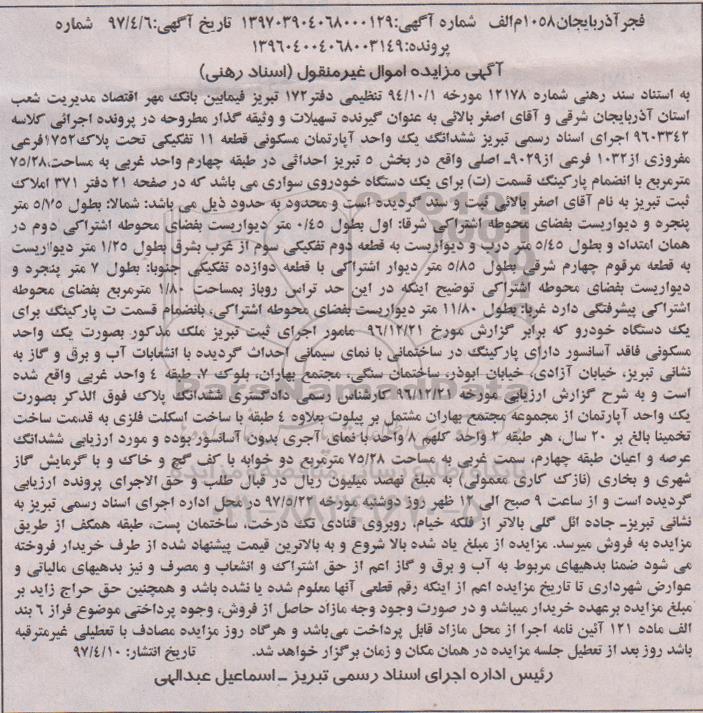 فجر آذربایجان۱۰۵۸م‌الف شماره آگهی:۱۳۹۷۰۳۹۰۴۰۶۸۰۰۰۱۲۹ تاریخ آگهی:۹۷/۴/۶ شماره
پرونده:۱۳۹۶۰۴۰۰۴۰۶۸۰۰۳۱۴۹
آگهی مزایده اموال غیرمنقول (اسناد رهنی)
به استناد سند رهنی شماره ۱۲۱۷۸ مورخه ۹۴/۱۰/۱ تنظیمی دفتر۱۷۲ تبریز فیمابین بانک مهر اقتصاد مدیریت شعب
استان آذربایجان شرقی و آقای اصغر بالائی به عنوان گیرنده تسهیلات و وثیقه گذار مطروحه در پرونده اجرائی کلاسه
۹۶۰۳۳۴۲ اجرای اسناد رسمی تبریز ششدانگ یک واحد آپارتمان مسکونی قطعه ۱۱ تفکیکی تحت پلاک۱۷۵۲فرعی
مفروزی از۱۰۳۲ فرعی از۹۰۲۹ـ اصلی واقع در بخش ۵ تبریز احداثی در طبقه چهارم واحد غربی به مساحت،۷۵/۲۸
مترمربع با انضمام پارکینگ قسمت (ت) برای یک دستگاه خودروی سواری می باشد که در صفحه ۲۱ دفتر ۳۷۱ املاک
ثبت تبریز به نام آقای اصغر بالائی ثبت و سند گردیده است و محدود به حدود ذیل می باشد: شمالا: بطول ۵/۷۵ متر
پنجره و دیواریست بفضای محوطه اشتراکی شرقا: اول بطول ۰/۴۵ متر دیواریست بفضای محوطه اشتراکی دوم در
همان امتداد و بطول ۵/۴۵ متر درب و دیواریست به قطعه دوم تفکیکی سوم از غرب بشرق بطول ۱/۲۵ متر دیواریست
به قطعه مرقوم چهارم شرقی بطول ۵/۸۵ متر دیوار اشتراکی با قطعه دوازده تفکیکی جنوبا: بطول ۷ متر پنجره و
دیواریست بفضای محوطه اشتراکی توضیح اینکه در این حد تراس روباز بمساحت ۱/۸۰ مترمربع بفضای محوطه
اشتراکی پیشرفتگی دارد غربا: بطول ۱۱/۸۰ متر دیواریست بفضای محوطه اشتراکی، بانضمام قسمت ت پارکینگ برای
یک دستگاه خودرو که برابر گزارش مورخ ۹۶/۱۲/۲۱ مامور اجرای ثبت تبریز ملک مذکور بصورت یک واحد
مسکونی فاقد آسانسور دارای پارکینگ در ساختمانی با نمای سیمانی احداث گردیده با انشعابات آب و برق و گاز به
نشانی تبریز، خیابان آزادی، خیابان ابوذر، ساختمان سنگی، مجتمع بهاران، بلوک ۷، طبقه ۴ واحد غربی واقع شده
است و به شرح گزارش ارزیابی مورخه ۹۶/۱۲/۲۱ کارشناس رسمی دادگستری ششدانگ پلاک فوق الذکر بصورت
یک واحد آپارتمان از مجموعه مجتمع بهاران مشتمل بر پیلوت بعلاوه ۴ طبقه با ساخت اسکلت فلزی به قدمت ساخت
تخمینا بالغ بر ۲۰ سال، هر طبقه ۲ واحد کلهم ۸ واحد با نمای آجری بدون آسانسور بوده و مورد ارزیابی ششدانگ
عرصه و اعیان طبقه چهارم، سمت غربی به مساحت ۷۵/۲۸ مترمربع دو خوابه با کف گچ و خاک و با گرمایش گاز
شهری و بخاری (نازک کاری معمولی) به مبلغ نهصد میلیون ریال در قبال طلب و حق الاجرای پرونده ارزیابی
گردیده است و از ساعت ۹ صبح الی ۱۲ ظهر روز دوشنبه مورخه ۹۷/۵/۲۲ در محل اداره اجرای اسناد رسمی تبریز به
نشانی تبریزـ جاده ائل گلی بالاتر از فلکه خیام، روبروی قنادی تک درخت، ساختمان پست، طبقه همکف از طریق
مزایده به فروش میرسد. مزایده از مبلغ یاد شده بالا شروع و به بالاترین قیمت پیشنهاد شده از طرف خریدار فروخته
می شود ضمنا بدهیهای مربوط به آب و برق و گاز اعم از حق اشتراک و انشعاب و مصرف و نیز بدهیهای مالیاتی و
عوارض شهرداری تا تاریخ مزایده اعم از اینکه رقم قطعی آنها معلوم شده یا نشده باشد و همچنین حق حراج زاید بر
مبلغ مزایده برعهده خریدار میباشد و در صورت وجود وجه مازاد حاصل از فروش، وجوه پرداختی موضوع فراز ۶ بند
الف ماده ۱۲۱ آئین نامه اجرا از محل مازاد قابل پرداخت می‌باشد و هرگاه روز مزایده مصادف با تعطیلی غیرمترقبه
باشد روز بعد از تعطیل جلسه مزایده در همان مکان و زمان برگزار خواهد شد. تاریخ انتشار: ۹۷/۴/۱۰
رئیس اداره اجرای اسناد رسمی تبریز ـ اسماعیل عبدالهی